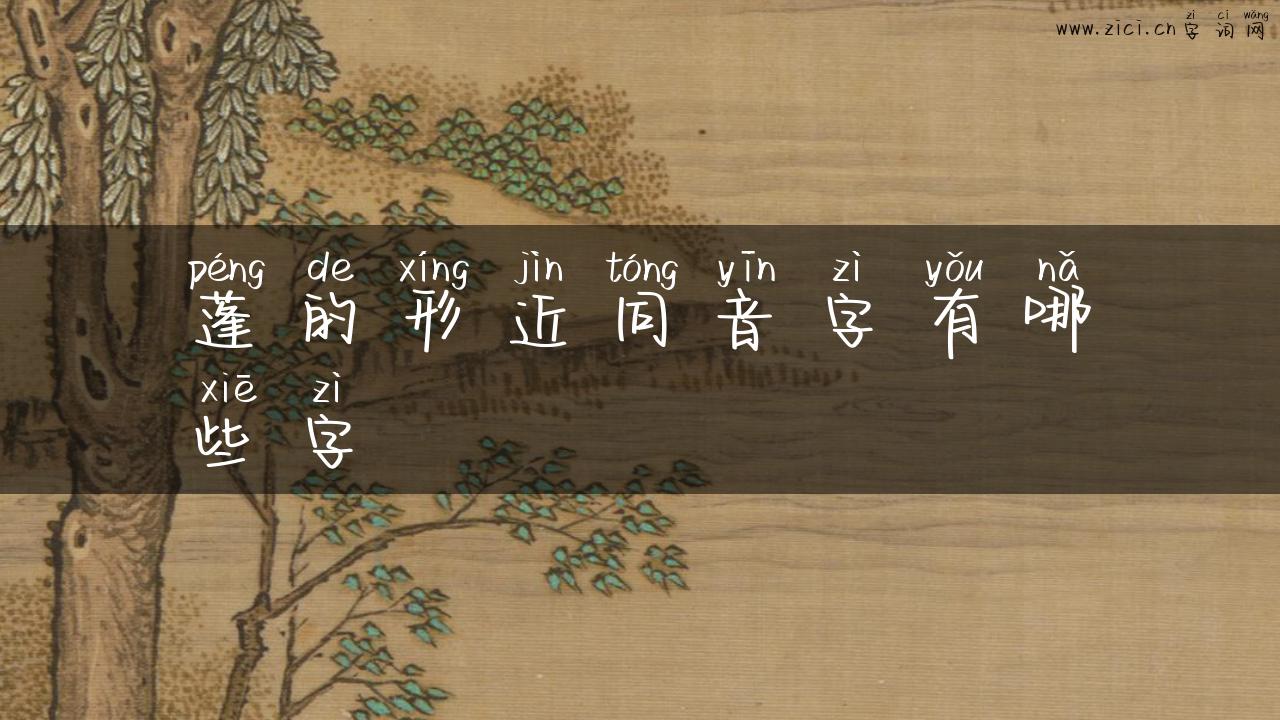 zì cí wǎng
www.zici.cn 字词网
péng de xíng jìn tóng yīn zì yǒu nǎ
蓬的形近同音字有哪
xiē zì
些字